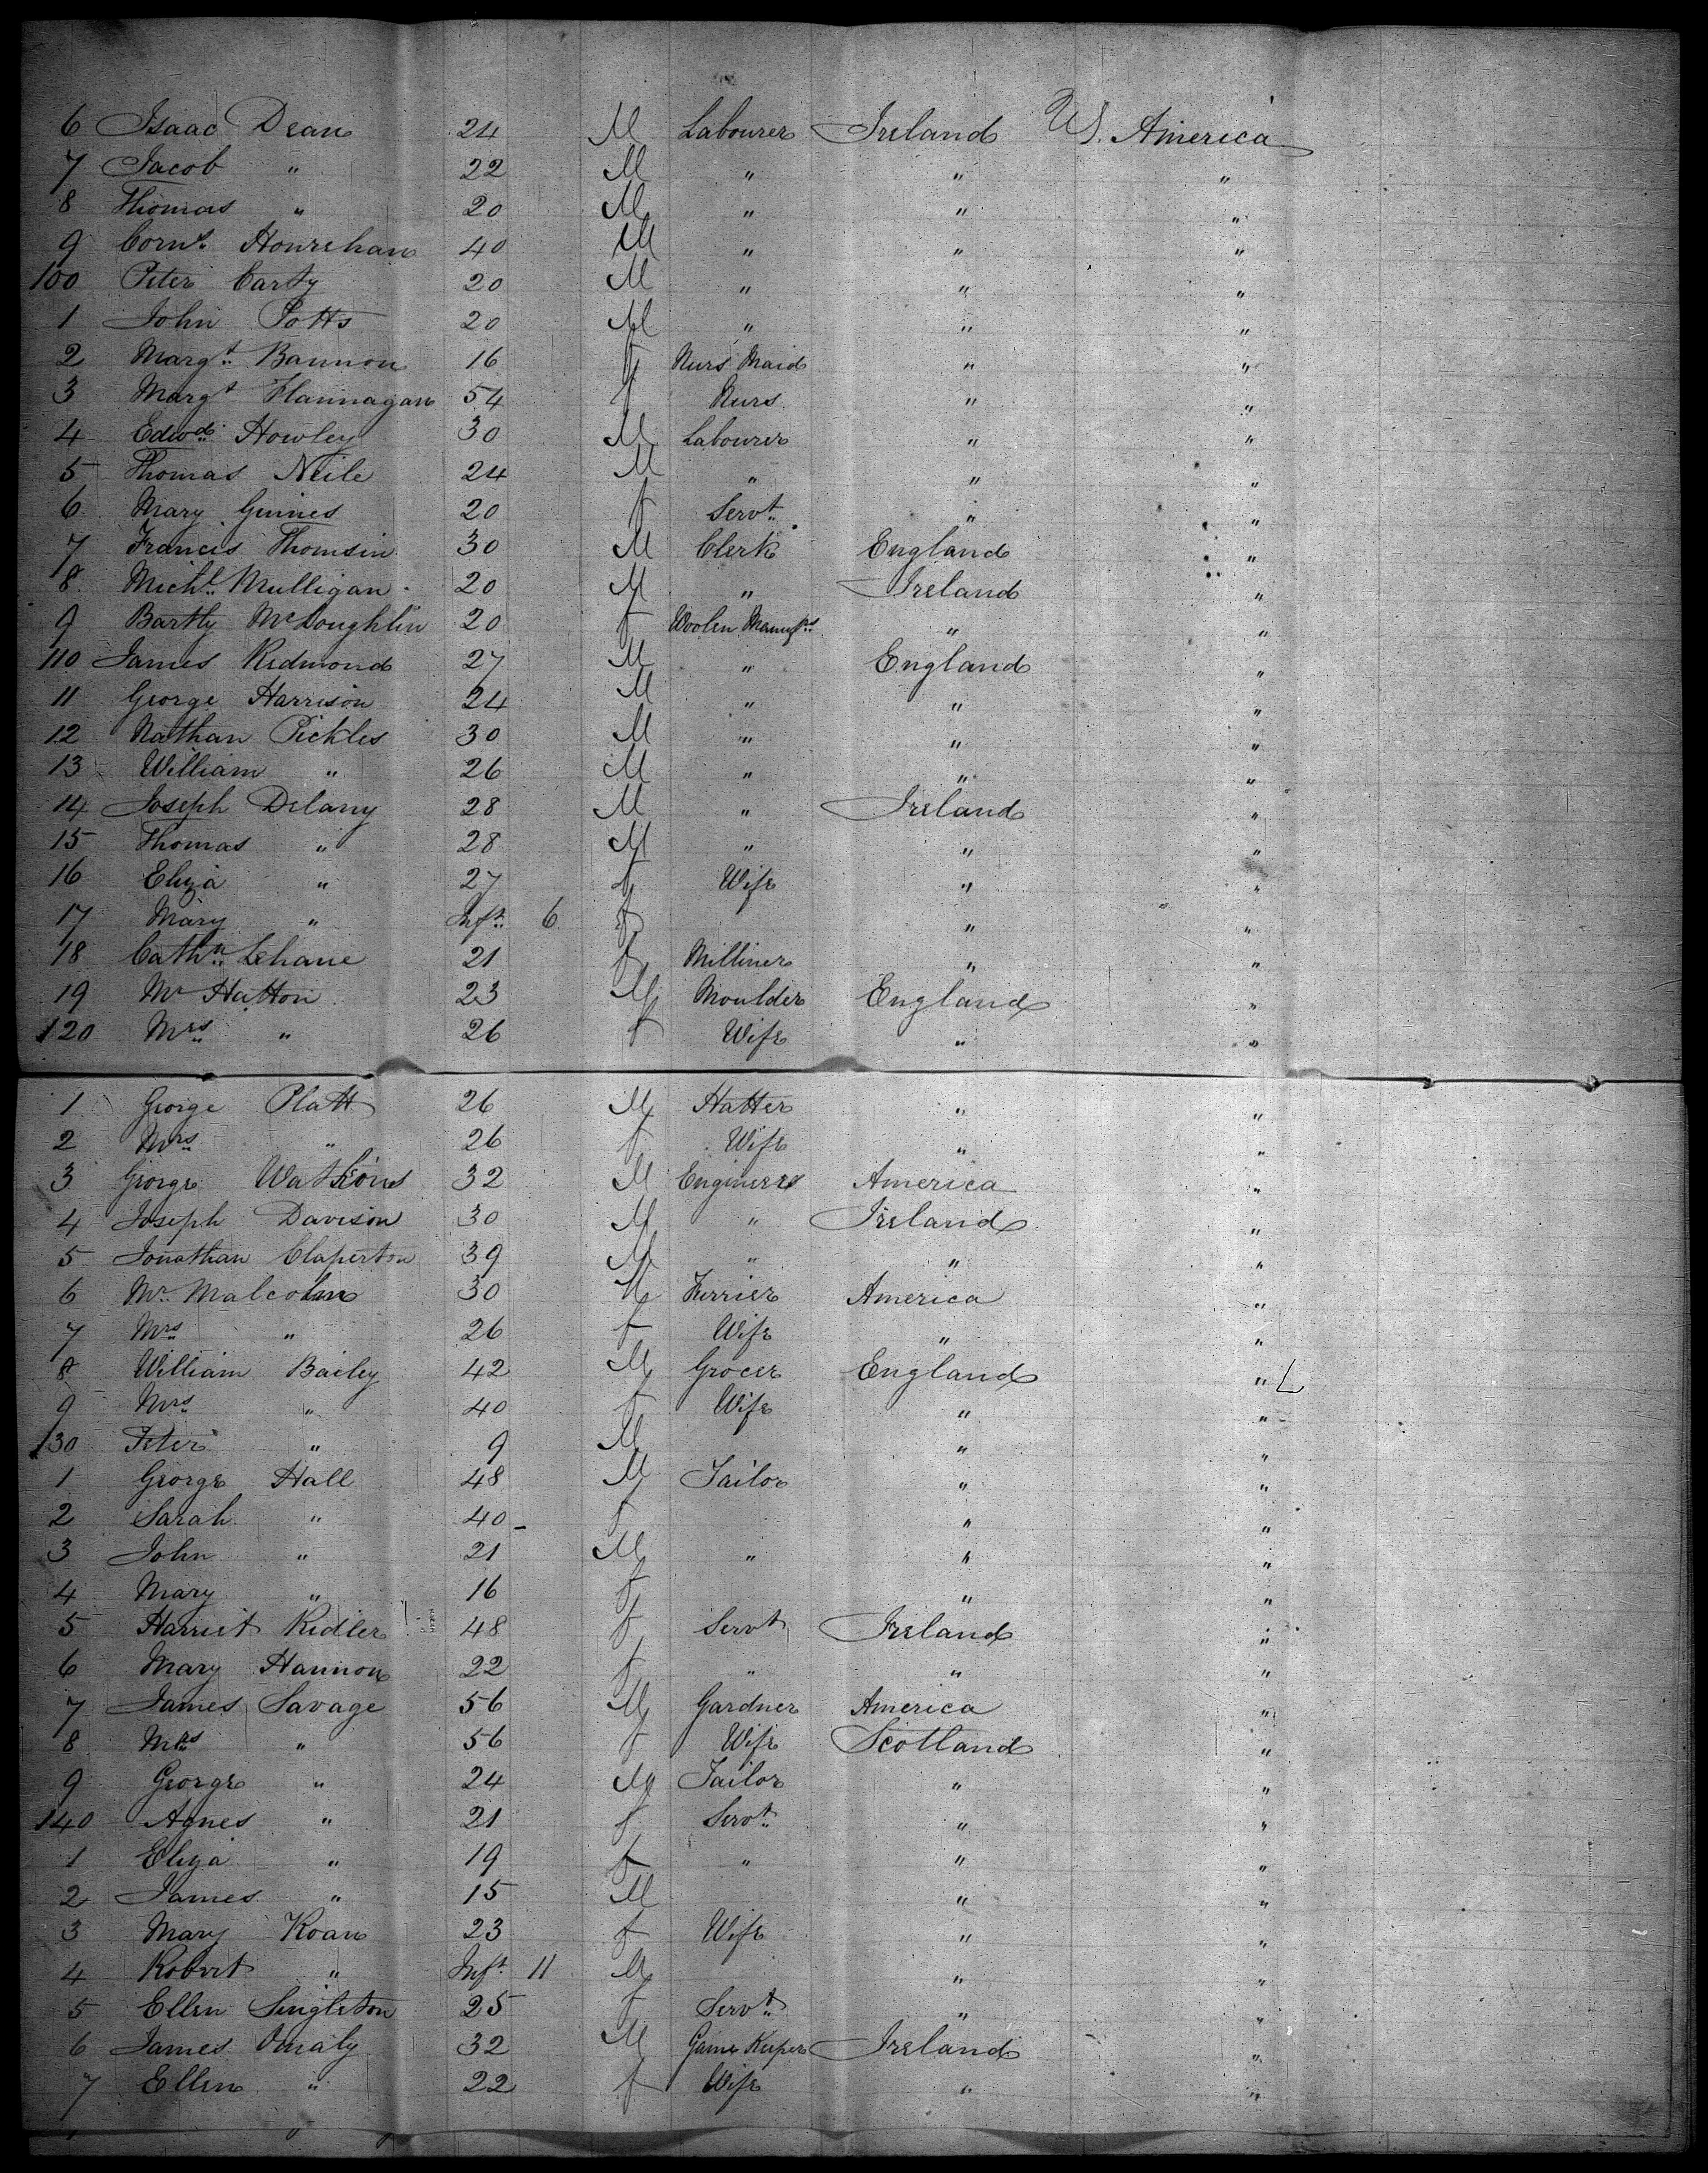 6 Isaac Dean 24 M Labourer Ireland U.S. America
7 Jacob " 22 M " " "
8 Thomas " 20 M " " "
9 Corns. Hourehan 40 M " " "
100 Peter Carty 20 M " " "
1 John Potts 20 M " " "
2 Margt. Bannon 16 f Nurs Maid " "
3 Margt Flannagan 54 f Nurs " "
4 Edwd. Howley 30 M Labourer " "
5 Thomas Neile 24 M " " "
6 Mary Guines 20 f Servt. " "
7 Francis Thomsin 30 M Clerk England "
8 Michl. Mulligan 20 M " Ireland "
9 Bartly McLoughlin 20 f Woolen " "
110 James Redmond 27 M " England "
11 George Harrison 24 M " " "
12 Nathan Pickles 30 M " " "
13 William " 26 M " " "
14 Joseph Delany 28 M " Ireland "
15 Thomas " 28 M " " "
16 Eliza " 27 f Wife " "
17 Mary " Inft. 6 f " "
18 Cathn. Lehane 21 f Milliner " "
19 Mr Hatton 23 M Moulder England "
120 Mrs " 26 f Wife " "
1 George Platt 26 M Hatter " "
2 Mrs " 26 f Wife " "
3 George Watkins 32 M Engineer America "
4 Joseph Davison 30 M " Ireland "
5 Jonathan Claperton 39 M " " "
6 Mr. Malcolm 30 M Furrier America "
7 Mrs " 26 f Wife " "
8 William Bailey 42 M Grocer England " L
9 Mrs " 40 f Wife " "
130 Peter " 9 M " "
1 George Hall 48 M Tailor " "
2 Sarah " 40 f " "
3 John " 21 M " " "
4 Mary " 16 f " "
5 Harriet Ridler 48 f Servt Ireland "
6 Mary Hannon 22 f " " "
7 James Savage 56 M Gardner America "
8 Mrs " 56 f Wife Scotland "
9 George " 24 M Tailor " "
140 Agnes " 21 f Servt. " "
1 Eliza " 19 f " " "
2 James " 15 M " "
3 Mary Koan 23 f Wife " "
4 Robert " Inft. 11 M " "
5 Ellen Singleton 25 f Servt. " "
6 James Omaly 32 M Game Keeper Ireland "
7 Ellen " 22 f Wife " "